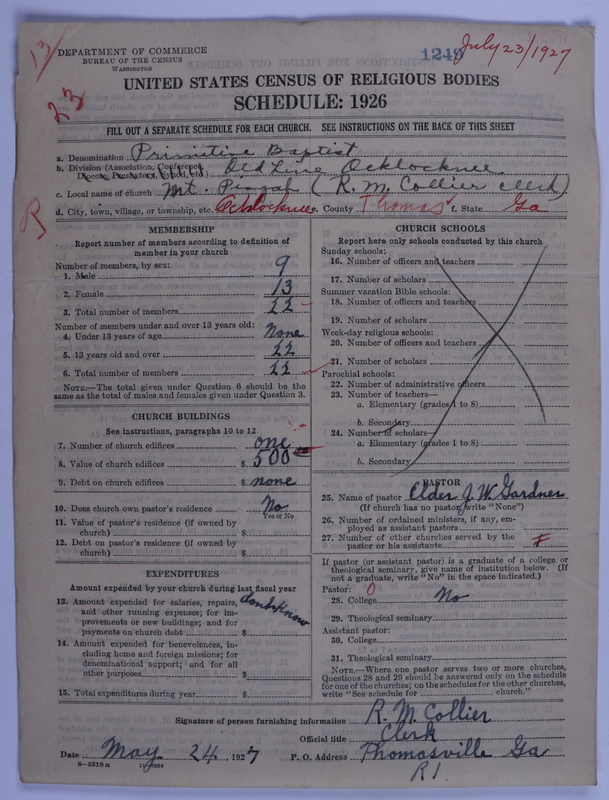 13
DEPARTMENT OF COMMERCE
BUREAU OF THE CENSUS
WASHINGTON
1249 July 23/1927
UNITED STATES CENSUS OF RELIGIOUS BODIES
SCHEDULE: 1926
FILL OUT A SEPARATE SCHEDULE FOR EACH CHURCH. SEE INSTRUCTIONS ON THE BACK OF THIS SHEET
a. Denomination Primitive Baptist
b. Division (Association, Conference, Old Line Ocklocknee
Diocese, Presbytery, Synod, etc.)
c. Local name of church Mt. Pisgah (R. M. Collier clerk)
d. City, town, village, or township, etc. Ochlocknee e. County Thomas f. State Ga
R
MEMBERSHIP
Report number of members according to definition of
member in your church
Number of members, by sex:
1. Male 9
2. Female 13
3. Total number of members 22
Number of members under and over 13 years old:
4. Under 13 years of age None
5. 13 years old and over 22
6. Total number of members 22
NOTE.—The total given under Question 6 should be the
same as the total of males and females given under Question 3.
CHURCH BUILDINGS
See instructions, paragraphs 10 to 12
7. Number of church edifices one
8. Value of church edifices $ 500
9. Debt on church edifices $ none
10. Does church own pastor's residence No
Yes or No
11. Value of pastor's residence (if owned by
church) $
12. Debt on pastor's residence (if owned by
church) $
EXPENDITURES
Amount expended by your church during last fiscal year
13. Amount expended for salaries, repairs, dont know
and other running expense; for im-
provements or new buildings; and for
payments on church debt $
14. Amount expended for benevolences, in-
cluding home and foreign missions; for
denominational support; and for all
other purposes $
15. Total expenditures during year $
CHURCH SCHOOLS
Report here only schools conducted by this church
Sunday schools:
16. Number of officers and teachers
17. Number of scholars
Summer vacation Bible schools:
18. Number of officers and teachers
19. Number of scholars
Week-day religious schools:
20. Number of officers and teachers
21. Number of scholars
Parochial schools:
22. Number of administrative officers
23. Number of teachers—
a. Elementary (grades 1 to 8)
b. Secondary
24. Number of scholars—
a. Elementary (grades 1 to 8)
b. Secondary
PASTOR
25. Name of pastor Elder J. W. Gardner
(If church has no pastor, write "None")
26. Number of ordained ministers, if any, em-
ployed as assistant pastors
27. Number of other churches served by the
pastor or his assistants
If pastor (or assistant pastor) is a graduate of a college or
theological seminary, give name of institution below. (If
not a graduate, write "No" in the space indicated.)
Pastor: 0
28. College No
29. Theological seminary
Assistant pastor:
30. College
31. Theological seminary
NOTE.—Where one pastor serves two or more churches,
Questions 28 and 29 should be answered only on the schedule
for one of the churches; on the schedules for the other churches,
write "See schedule for church."
Signature of person furnishing information R. M. Collier
Official title Clerk
Date May 24, 1927 P. O. Address Thomasville Ga
R 1
8—5518 a